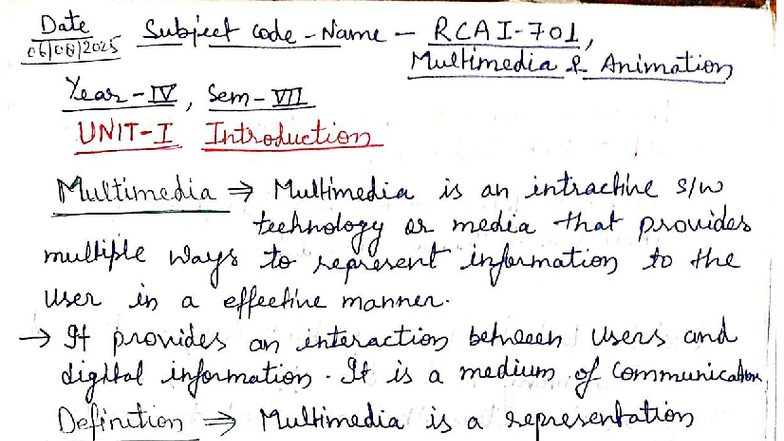 Date
06/08/2025 Subject code - Name - RCAI-701,
Multimedia & Animation
Year - IV, Sem - VII
UNIT-I Introduction
Multimedia ⇒ Multimedia is an intractive s/w
technology or media that provides
multiple ways to represent information to the
user in a effective manner.
→ It provides an interaction between users and
digital information. It is a medium of communication.
Definition ⇒ Multimedia is a representation